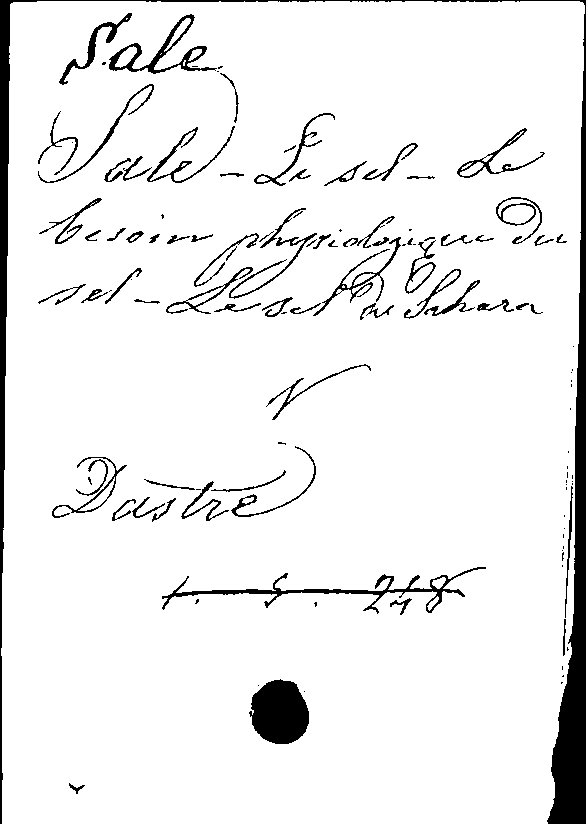 Sale
Sale - Le sel - Le
besoin physiologique du
sel - Le sel du Sahara
V
Dastre
1. 5. 248